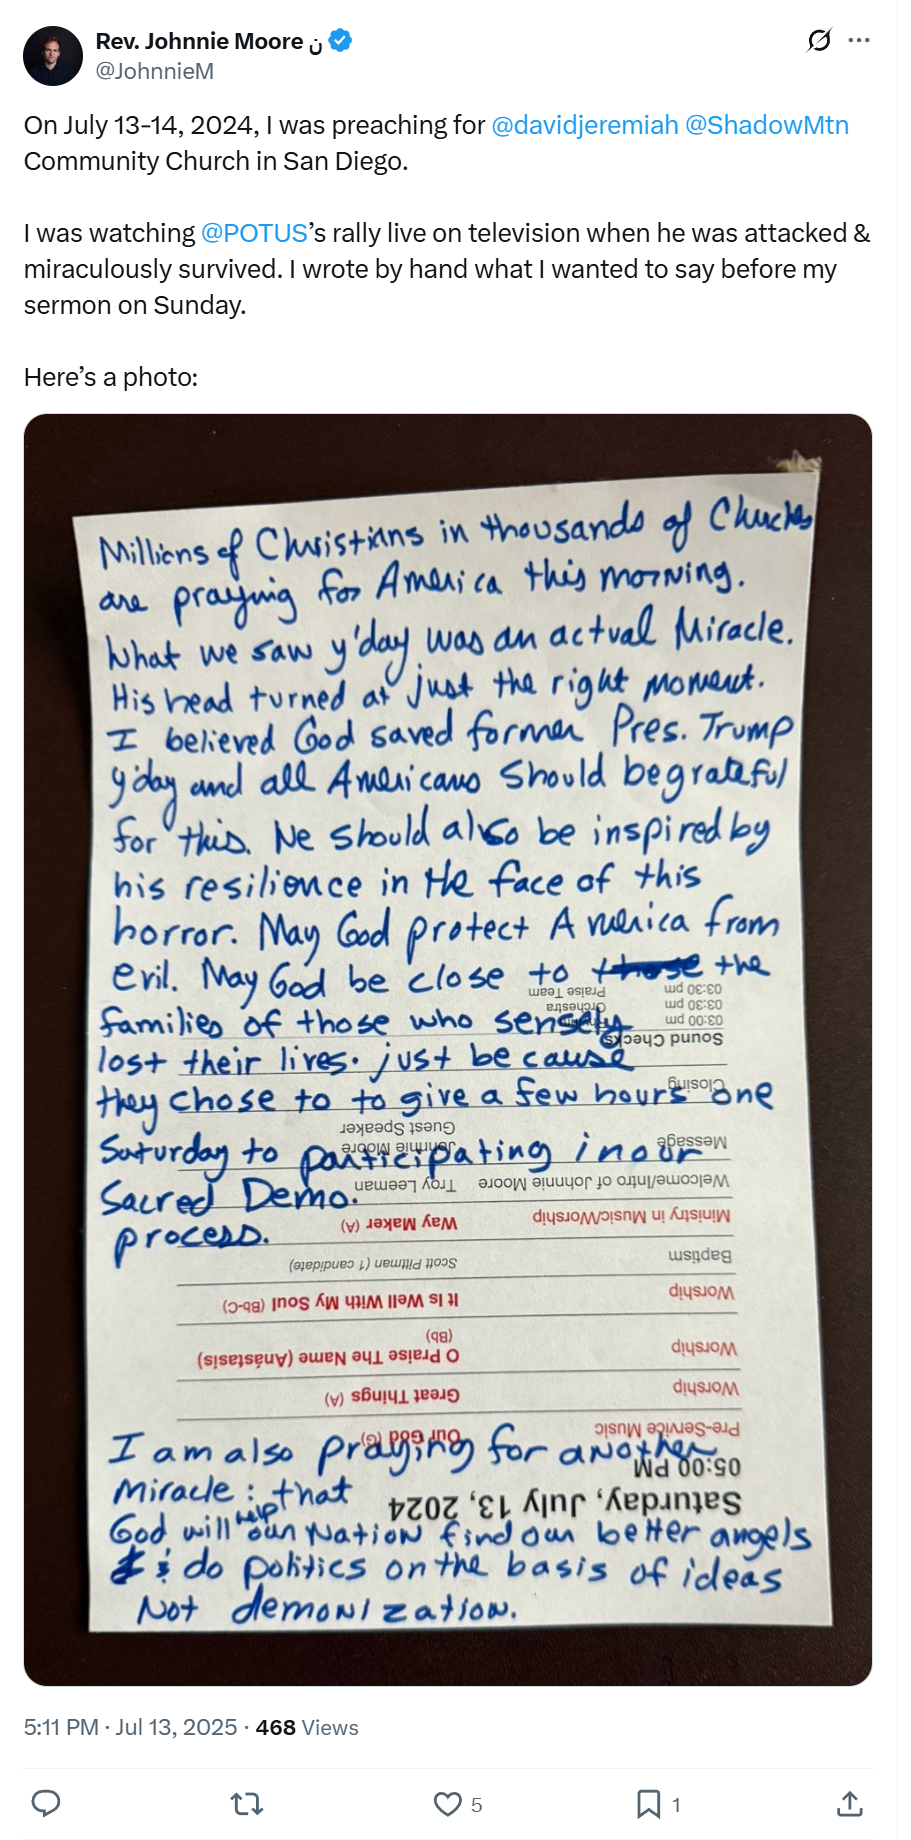 Rev. Johnnie Moore ن
@JohnnieM
On July 13-14, 2024, I was preaching for @davidjeremiah @ShadowMtn
Community Church in San Diego.
I was watching @POTUS’s rally live on television when he was attacked &
miraculously survived. I wrote by hand what I wanted to say before my
sermon on Sunday.
Here’s a photo:
Millions of Christians in thousands of Chuches
are praying for America this morning.
What we saw y'day was an actual Miracle.
His head turned at just the right moment.
I believed God saved former Pres. Trump
y'day and all Americans should be grateful
for this. We should also be inspired by
his resilience in the face of this
horror. May God protect America from
evil. May God be close to those the
Praise Team 03:30 pm
Orchestra 03:30 pm
03:00 pm
families of those who sensely
Sound Checks
lost their lives. just because
Closing
they chose to to give a few hours one
Guest Speaker
Message Johnnie Moore
Saturday to participating in our
Welcome/Intro of Johnnie Moore Troy Leeman
Sacred Demo.
Ministry in Music/Worship Way Maker (A)
process.
Baptism Scott Pittman (1 candidate)
Worship It Is Well With My Soul (Bb-C)
(Bb)
Worship O Praise The Name (Anástasis)
Worship Great Things (A)
Pre-Service Music Our God (G)
I am also praying for another
05:00 PM
Miracle: that
Saturday, July 13, 2024
God will help our Nation find our better angels
& do politics on the basis of ideas
Not demonization.
5:11 PM · Jul 13, 2025 · 468 Views
5
1